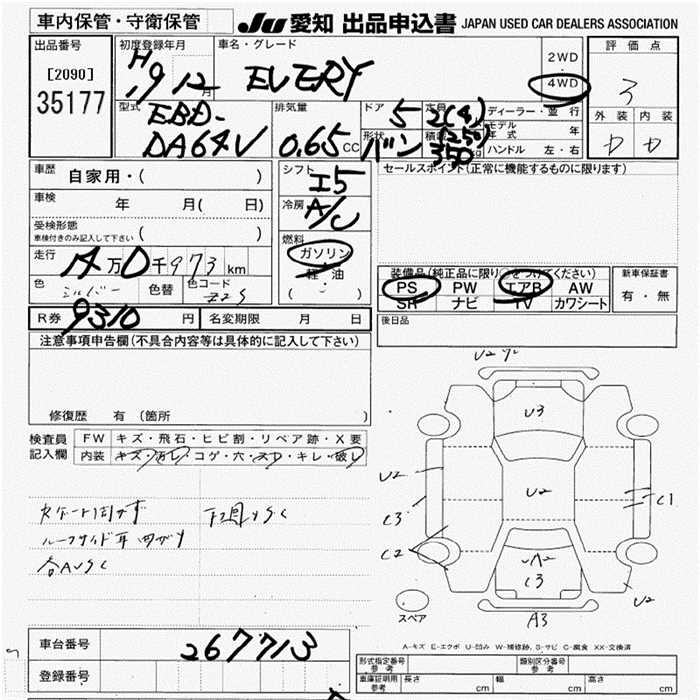 車内保管・守衛保管
JU 愛知 出品申込書 JAPAN USED CAR DEALERS ASSOCIATION
出品番号
[2090]
35177
初度登録年月
H19 12
車名・グレード
EVERY
2WD
・
4WD
評価点
3
外装 内装
型式
EBD-
DA64V
排気量
0.65 CC
ドア
5
定員
2(4)
形状
バン
積載
(250)
350 kg
ディーラー・並行
モデル
年式 年
ハンドル 左・右
車歴
自家用・( )
車検
年 月( 日)
受検形態
車検付きのみ記入して下さい ( )
走行
14万0千973km
色
シルバー
色替
色コード
Z2S
シフト
I5
冷房
A/C
燃料
ガソリン
・
軽油
( )
セールスポイント(正常に機能するものに限ります)
装備品(純正品に限り○をつけてください)
PS PW エアB AW
SR ナビ TV カワシート
新車保証書
有・無
R券 9310 円 名変期限 月 日
後日品
注意事項申告欄(不具合内容等は具体的に記入して下さい)
修復歴 有 (箇所 )
検査員
記入欄
FW キズ・飛石・ヒビ割・リペア跡・X要
内装 キズ・汚レ・コゲ・穴・スレ・キレ・破レ
下廻りSC
各AUSC
U2
U3
U2
U2
C3
C2
C1
C3
U2
A3
スペア
A-キズ E-エクボ U-凹み W-補修跡 S-サビ C-腐食 XX-交換済
車台番号 267713
登録番号
形式指定番号
参考
類別区分番号
参考
車庫証明用
参考
長さ cm 幅 cm 高さ cm